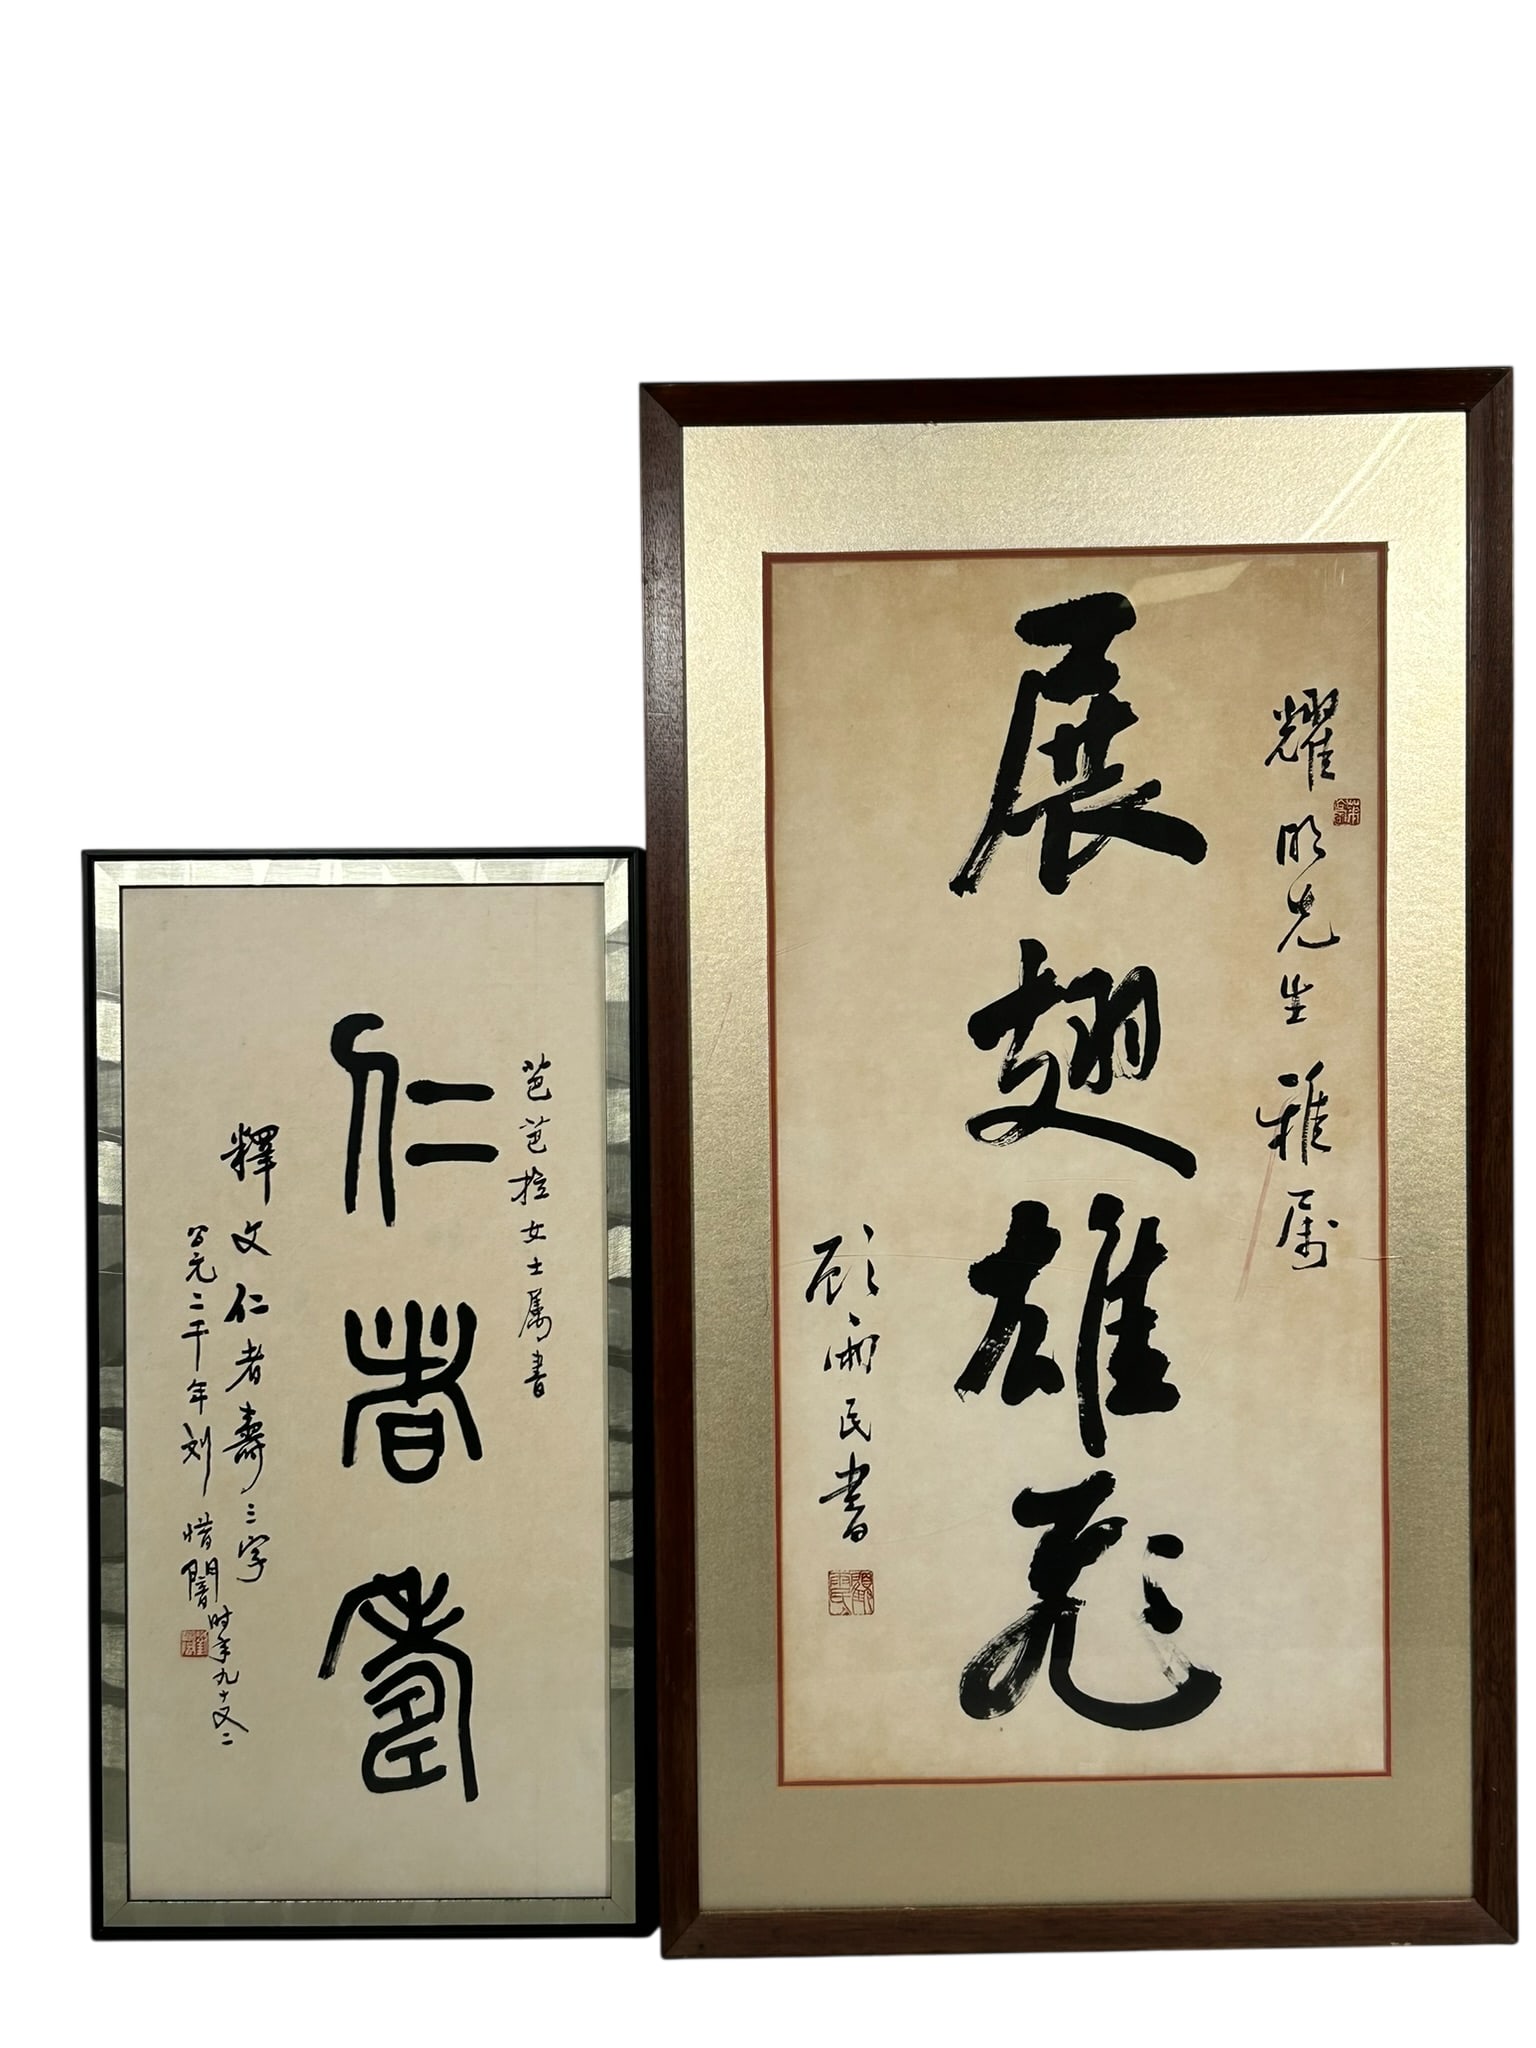 芭芭拉女士属書
仁者壽
釋文仁者壽三字
公元二千年刘惜闇时年九十又二
耀明先生雅属
展翅雄飛
顾雨民書